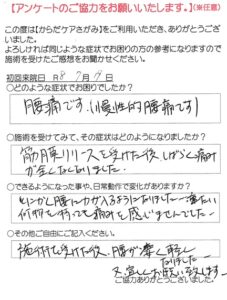 【アンケートのご協力をお願いいたします。】(※任意)
この度は(からだケアさがみ)をご利用いただき、ありがとうござ
いました。
よろしければ同じような症状でお困りの方の参考になりますので
施術を受けたご感想をお聞かせください。
初回来院日 R8 7月 日
○どのような症状でお困りでしたか?
腰痛です(慢性的腰痛です)
○施術を受けてみて、その症状はどのようになりましたか?
筋膜リリースを受けた後しばらく痛み
が全くなくなりました
○できるようになった事や、日常動作で変化がありますか?
とにかく腰に力が入るようになりました 重たい
荷物を持っても痛みを感じませんでした
○その他ご自由にご記入ください。
施術を受けた後、腰が凄く軽く
なりました
又宜しくお願い致します
ご協力ありがとうございました。